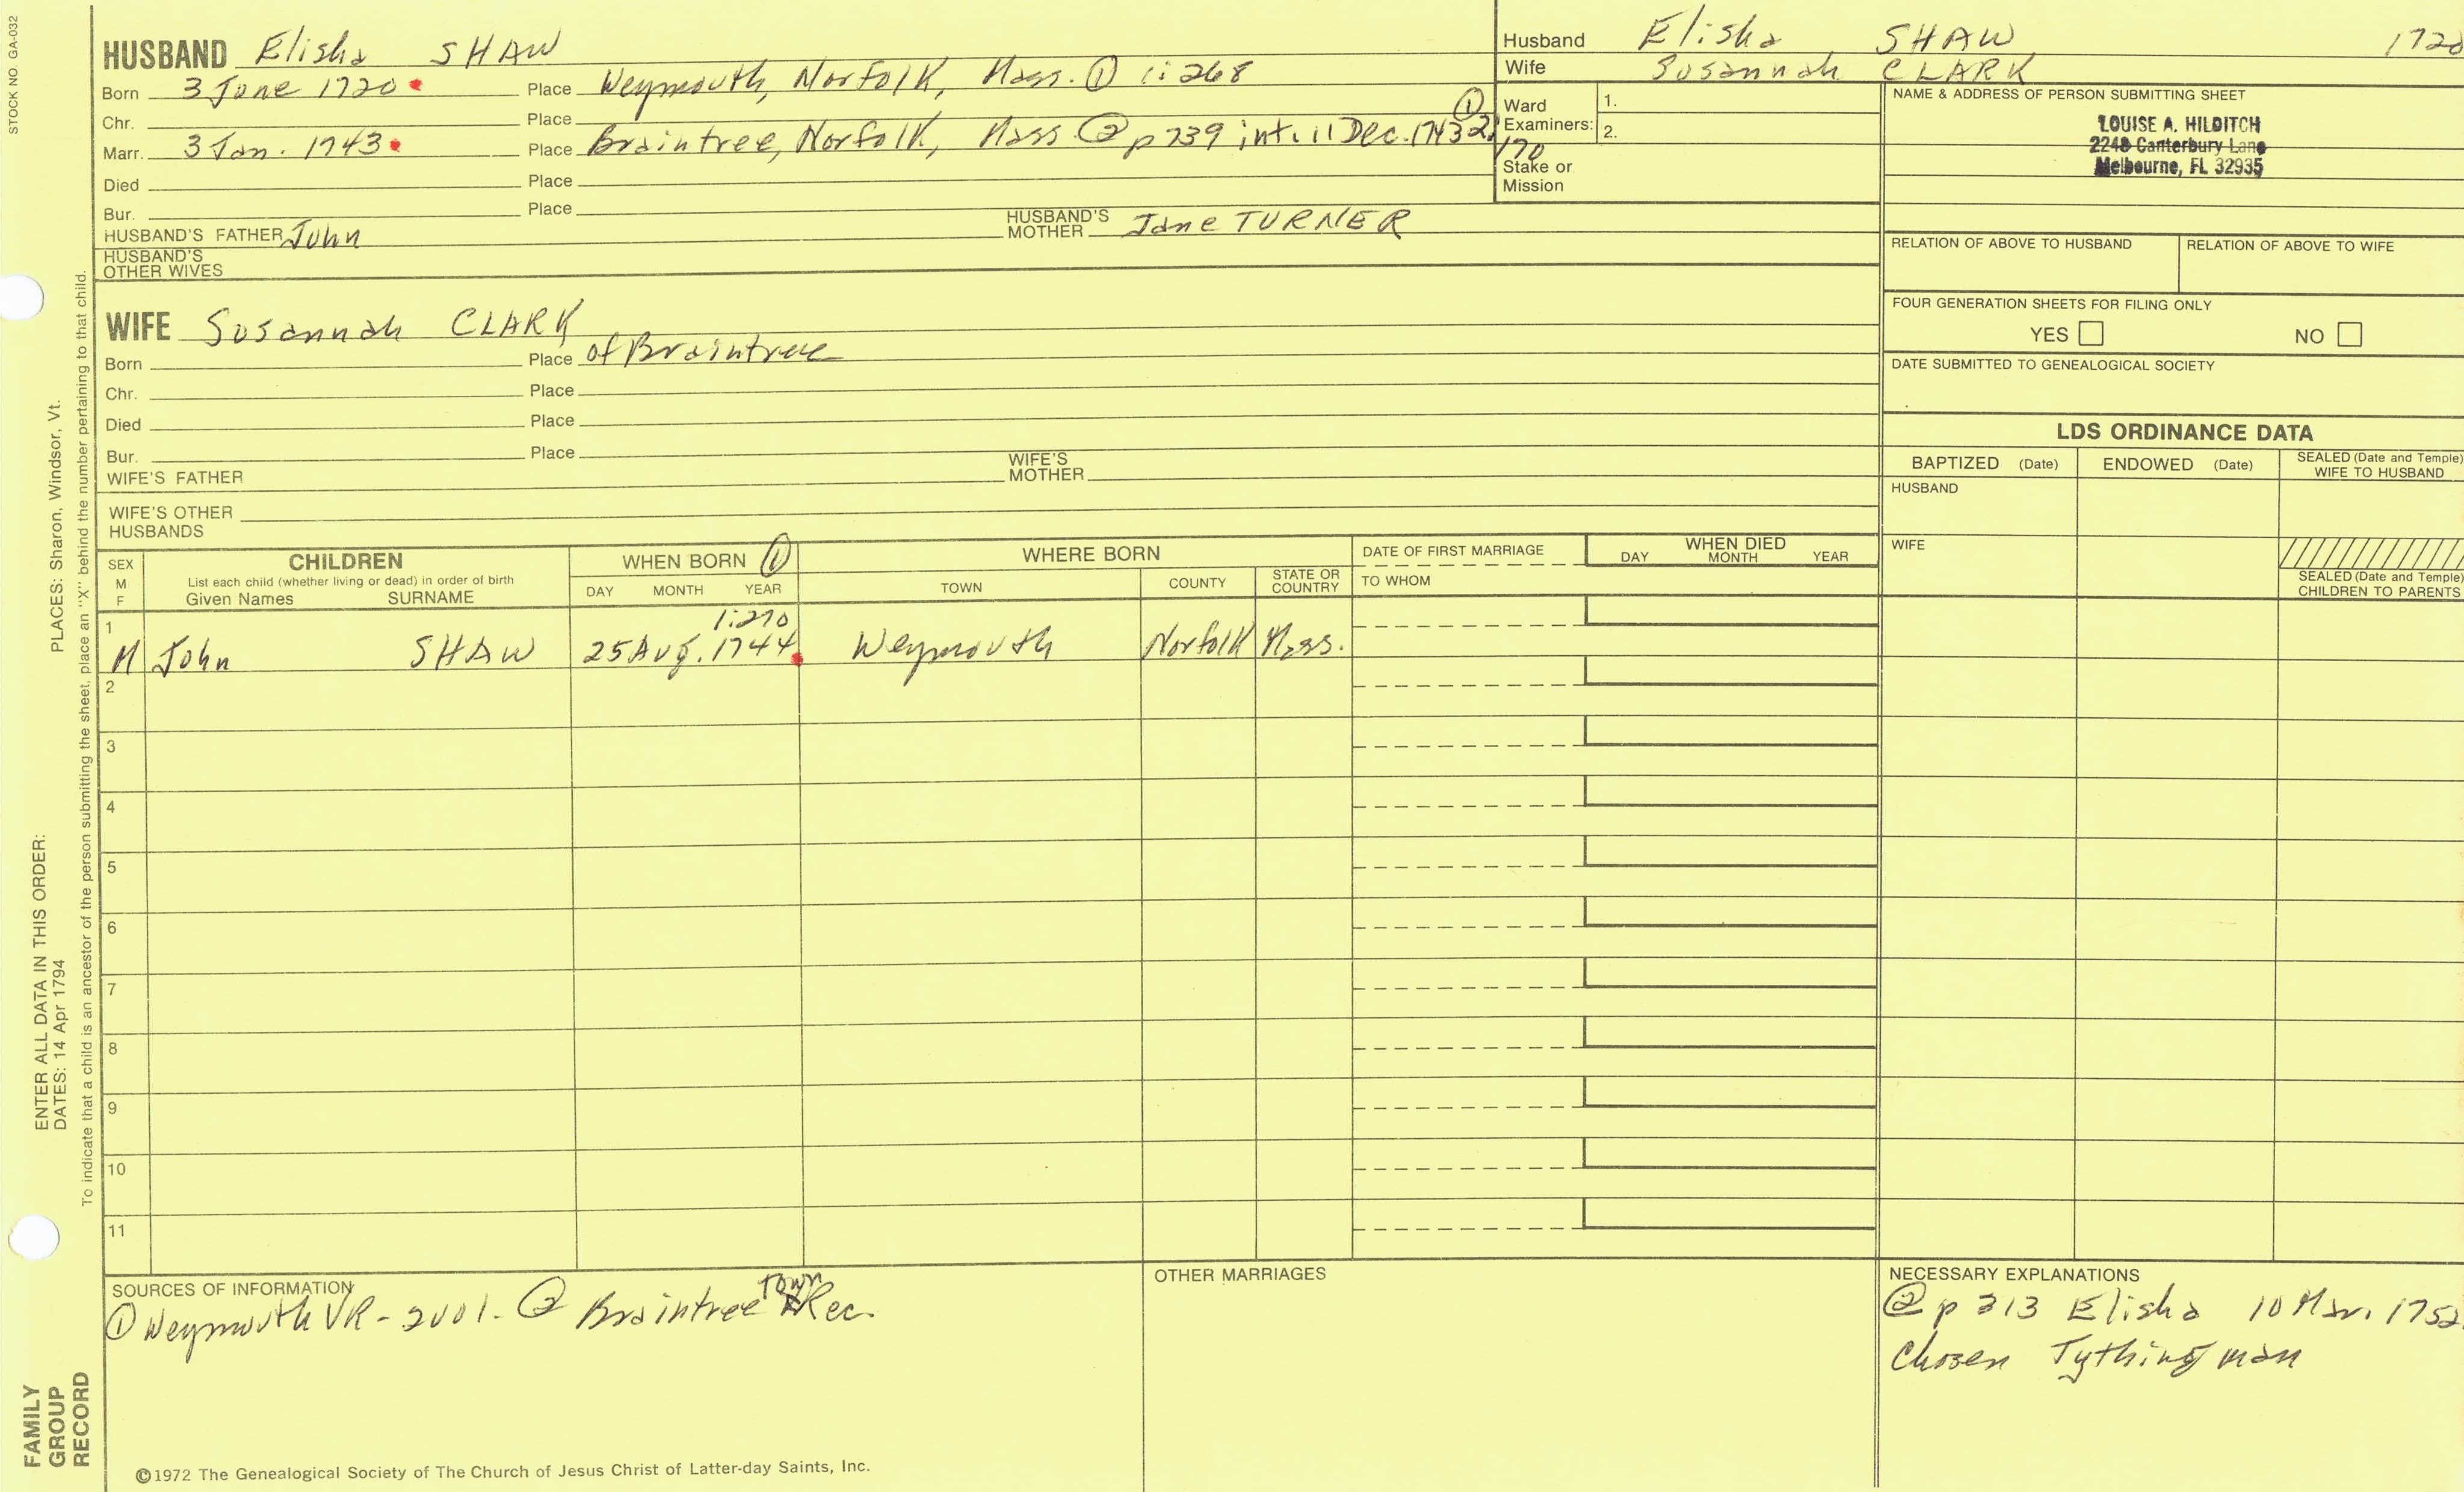 STOCK NO. GA-032
HUSBAND Elisha SHAW
Born 3 June 1720 Place Weymouth, Norfolk, Mass. ① 1:268
Chr. Place
Marr. 3 Jan. 1743 Place Braintree, Norfolk, Mass. ② p 739 int. 11 Dec. 1743 ① 2:170
Died Place
Bur. Place
HUSBAND'S FATHER John HUSBAND'S MOTHER Jane TURNER
HUSBAND'S OTHER WIVES
WIFE Susannah CLARK
Born Place of Braintree
Chr. Place
Died Place
Bur. Place
WIFE'S FATHER WIFE'S MOTHER
WIFE'S OTHER HUSBANDS
Husband Elisha SHAW 1720
Wife Susannah CLARK
Ward Examiners: 1. 2.
Stake or Mission
NAME & ADDRESS OF PERSON SUBMITTING SHEET
LOUISE A. HILDITCH
2248 Canterbury Lane
Melbourne, FL 32935
RELATION OF ABOVE TO HUSBAND RELATION OF ABOVE TO WIFE
FOUR GENERATION SHEETS FOR FILING ONLY
YES NO
DATE SUBMITTED TO GENEALOGICAL SOCIETY
LDS ORDINANCE DATA
BAPTIZED (Date) ENDOWED (Date) SEALED (Date and Temple) WIFE TO HUSBAND
HUSBAND
WIFE
SEALED (Date and Temple) CHILDREN TO PARENTS
SEX M F CHILDREN WHEN BORN ① WHERE BORN DATE OF FIRST MARRIAGE WHEN DIED
List each child (whether living or dead) in order of birth
Given Names SURNAME DAY MONTH YEAR TOWN COUNTY STATE OR COUNTRY TO WHOM DAY MONTH YEAR
1 1:270
M John SHAW 25 Aug. 1744 Weymouth Norfolk Mass.
2
3
4
5
6
7
8
9
10
11
SOURCES OF INFORMATION
① Weymouth VR - 2 vol. ② Braintree Town Rec.
OTHER MARRIAGES
NECESSARY EXPLANATIONS
② p 313 Elisha 10 Mar. 1752
Chosen Tythingman
©1972 The Genealogical Society of The Church of Jesus Christ of Latter-day Saints, Inc.
ENTER ALL DATA IN THIS ORDER:
DATES: 14 Apr 1794
PLACES: Sharon, Windsor, Vt.
To indicate that a child is an ancestor of the person submitting the sheet, place an "X" behind the number pertaining to that child.
FAMILY
GROUP
RECORD